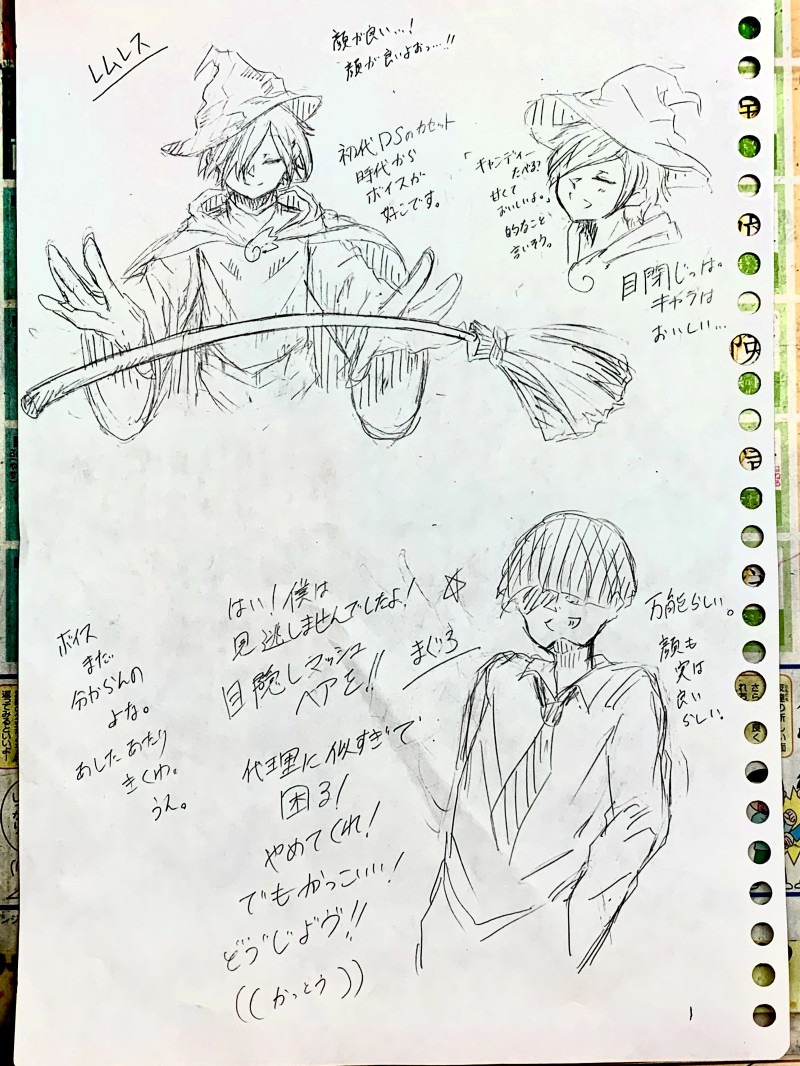 レムレス
顔が良い…!
顔が良いよおっ…!!
初代DSのカセット
時代から
ボイスが
好こです。
「キャンディー
たべる?
甘くて
おいしいよ。」
的なこと
言いそう。
目閉じっは。
キャラは
おいしい…
はい!僕は
見逃しませんでしたよ!☆
目隠しマッシュ
ヘアを!!
まぐろ
万能らしい。
顔も
実は
良い
らしい。
ボイス
まだ
分からんの
よな。
あしたあたり
きくわ。
うん。
代理に似すぎで
困る!
やめてくれ!
でもかっこいい!
どゔじよヴ!!
((かっとう))